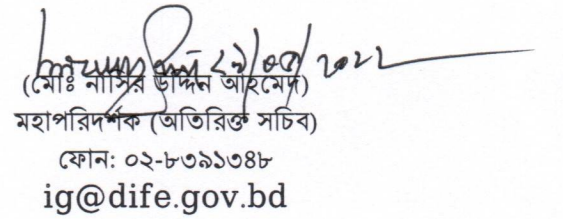 ২৯/০৫/২০২২
(মোঃ নাসির উদ্দিন আহমেদ)
মহাপরিদর্শক (অতিরিক্ত সচিব)
ফোন: ০২-৮৩৯১৩৪৮
ig@dife.gov.bd